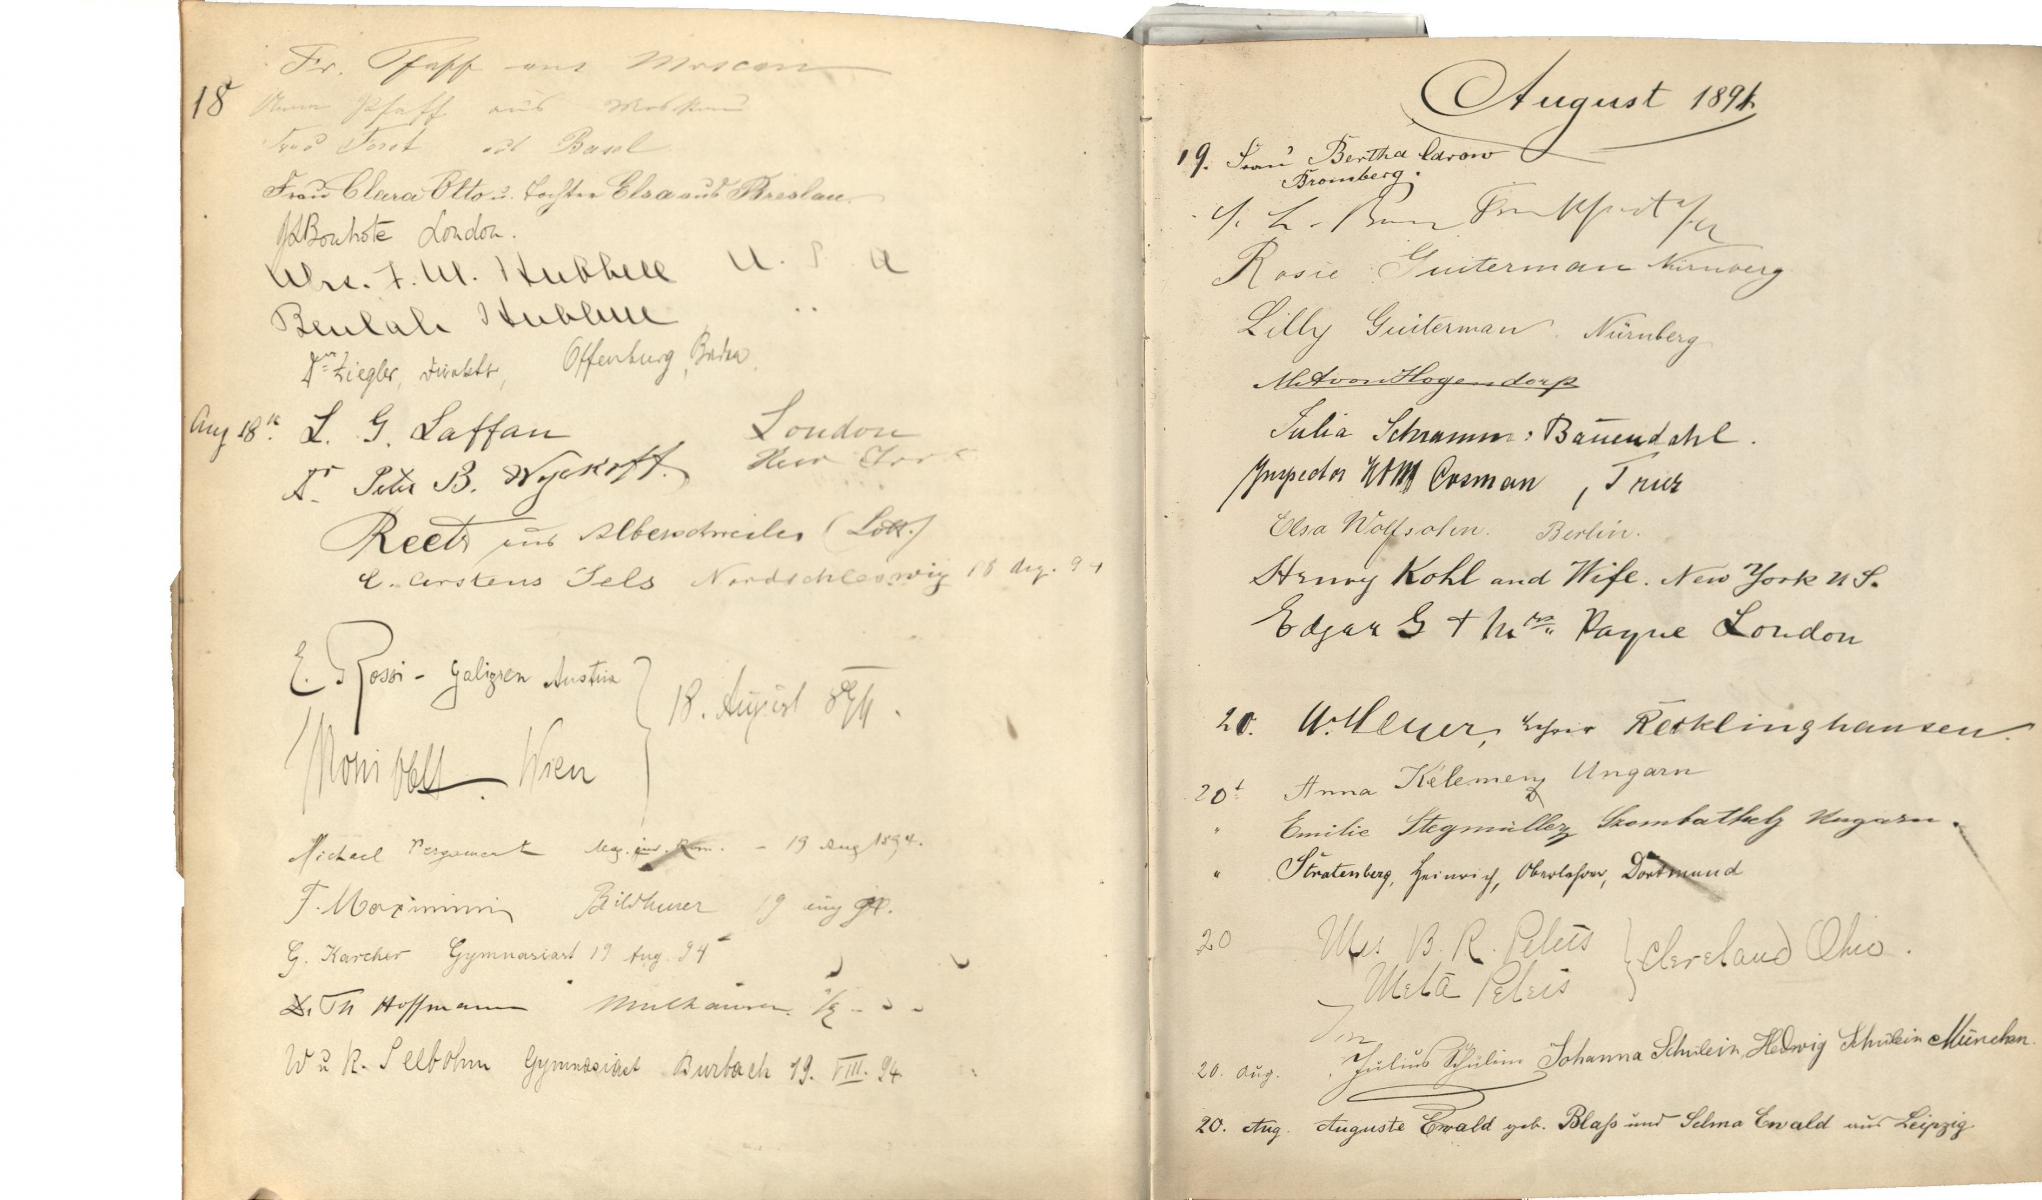 Fr. Pfaff aus Moscau
18
Pfaff aus Moskau
Basel
Frau Clara Otto u. Tochter Elsa aus Breslau
Bonhote London.
Mrs. F. M. Hubbell U. S. A
Beulah Hubbell " "
Ziegler, Direktor, Offenburg, Baden.
Aug 18th. L. G. Laffan London
Dr Peter B. Wyckoff. New York
Reetz aus Alberschweiler (Loth.)
C. Carstens Sels Nordschleswig 18 Aug. 94
E. Rossi - Austria
18. August 894.
Wien
Michael Pergament 19 Aug 1894.
F. Bildhauer 19 Aug 94.
G. Karcher Gymnasiast 19 Aug. 94
Th Hoffmann Mülhausen i/E - " "
W u. K. Seebohm Gymnasiast Burbach 19. VIII. 94
August 1894
19. Frau Bertha Carow
Bromberg.
Frankfurt a/M
Rosie Guiterman Nürnberg
Lilly Guiterman Nürnberg
von Hogendorp
Julia Schramm: Bauendahl.
Inspector Cosman, Trier
Elsa Wolfsohn. Berlin.
Henry Kohl and Wife. New York U S.
Edgar G + Mrs. Payne London
20. W. Meyer, Lehrer Recklinghausen.
20t Anna Kelemen Ungarn
" Emilie Stegmüller Szombathely Ungarn.
" Stratenberg, Heinrich, Oberlehrer, Dortmund
20 Mrs B. R. Peters
Meta Peters
Cleveland Ohio.
20. Aug. Julius Schülein Johanna Schülein, Hedwig Schülein München.
20. Aug. Auguste Ewald geb. Blaß und Selma Ewald aus Leipzig